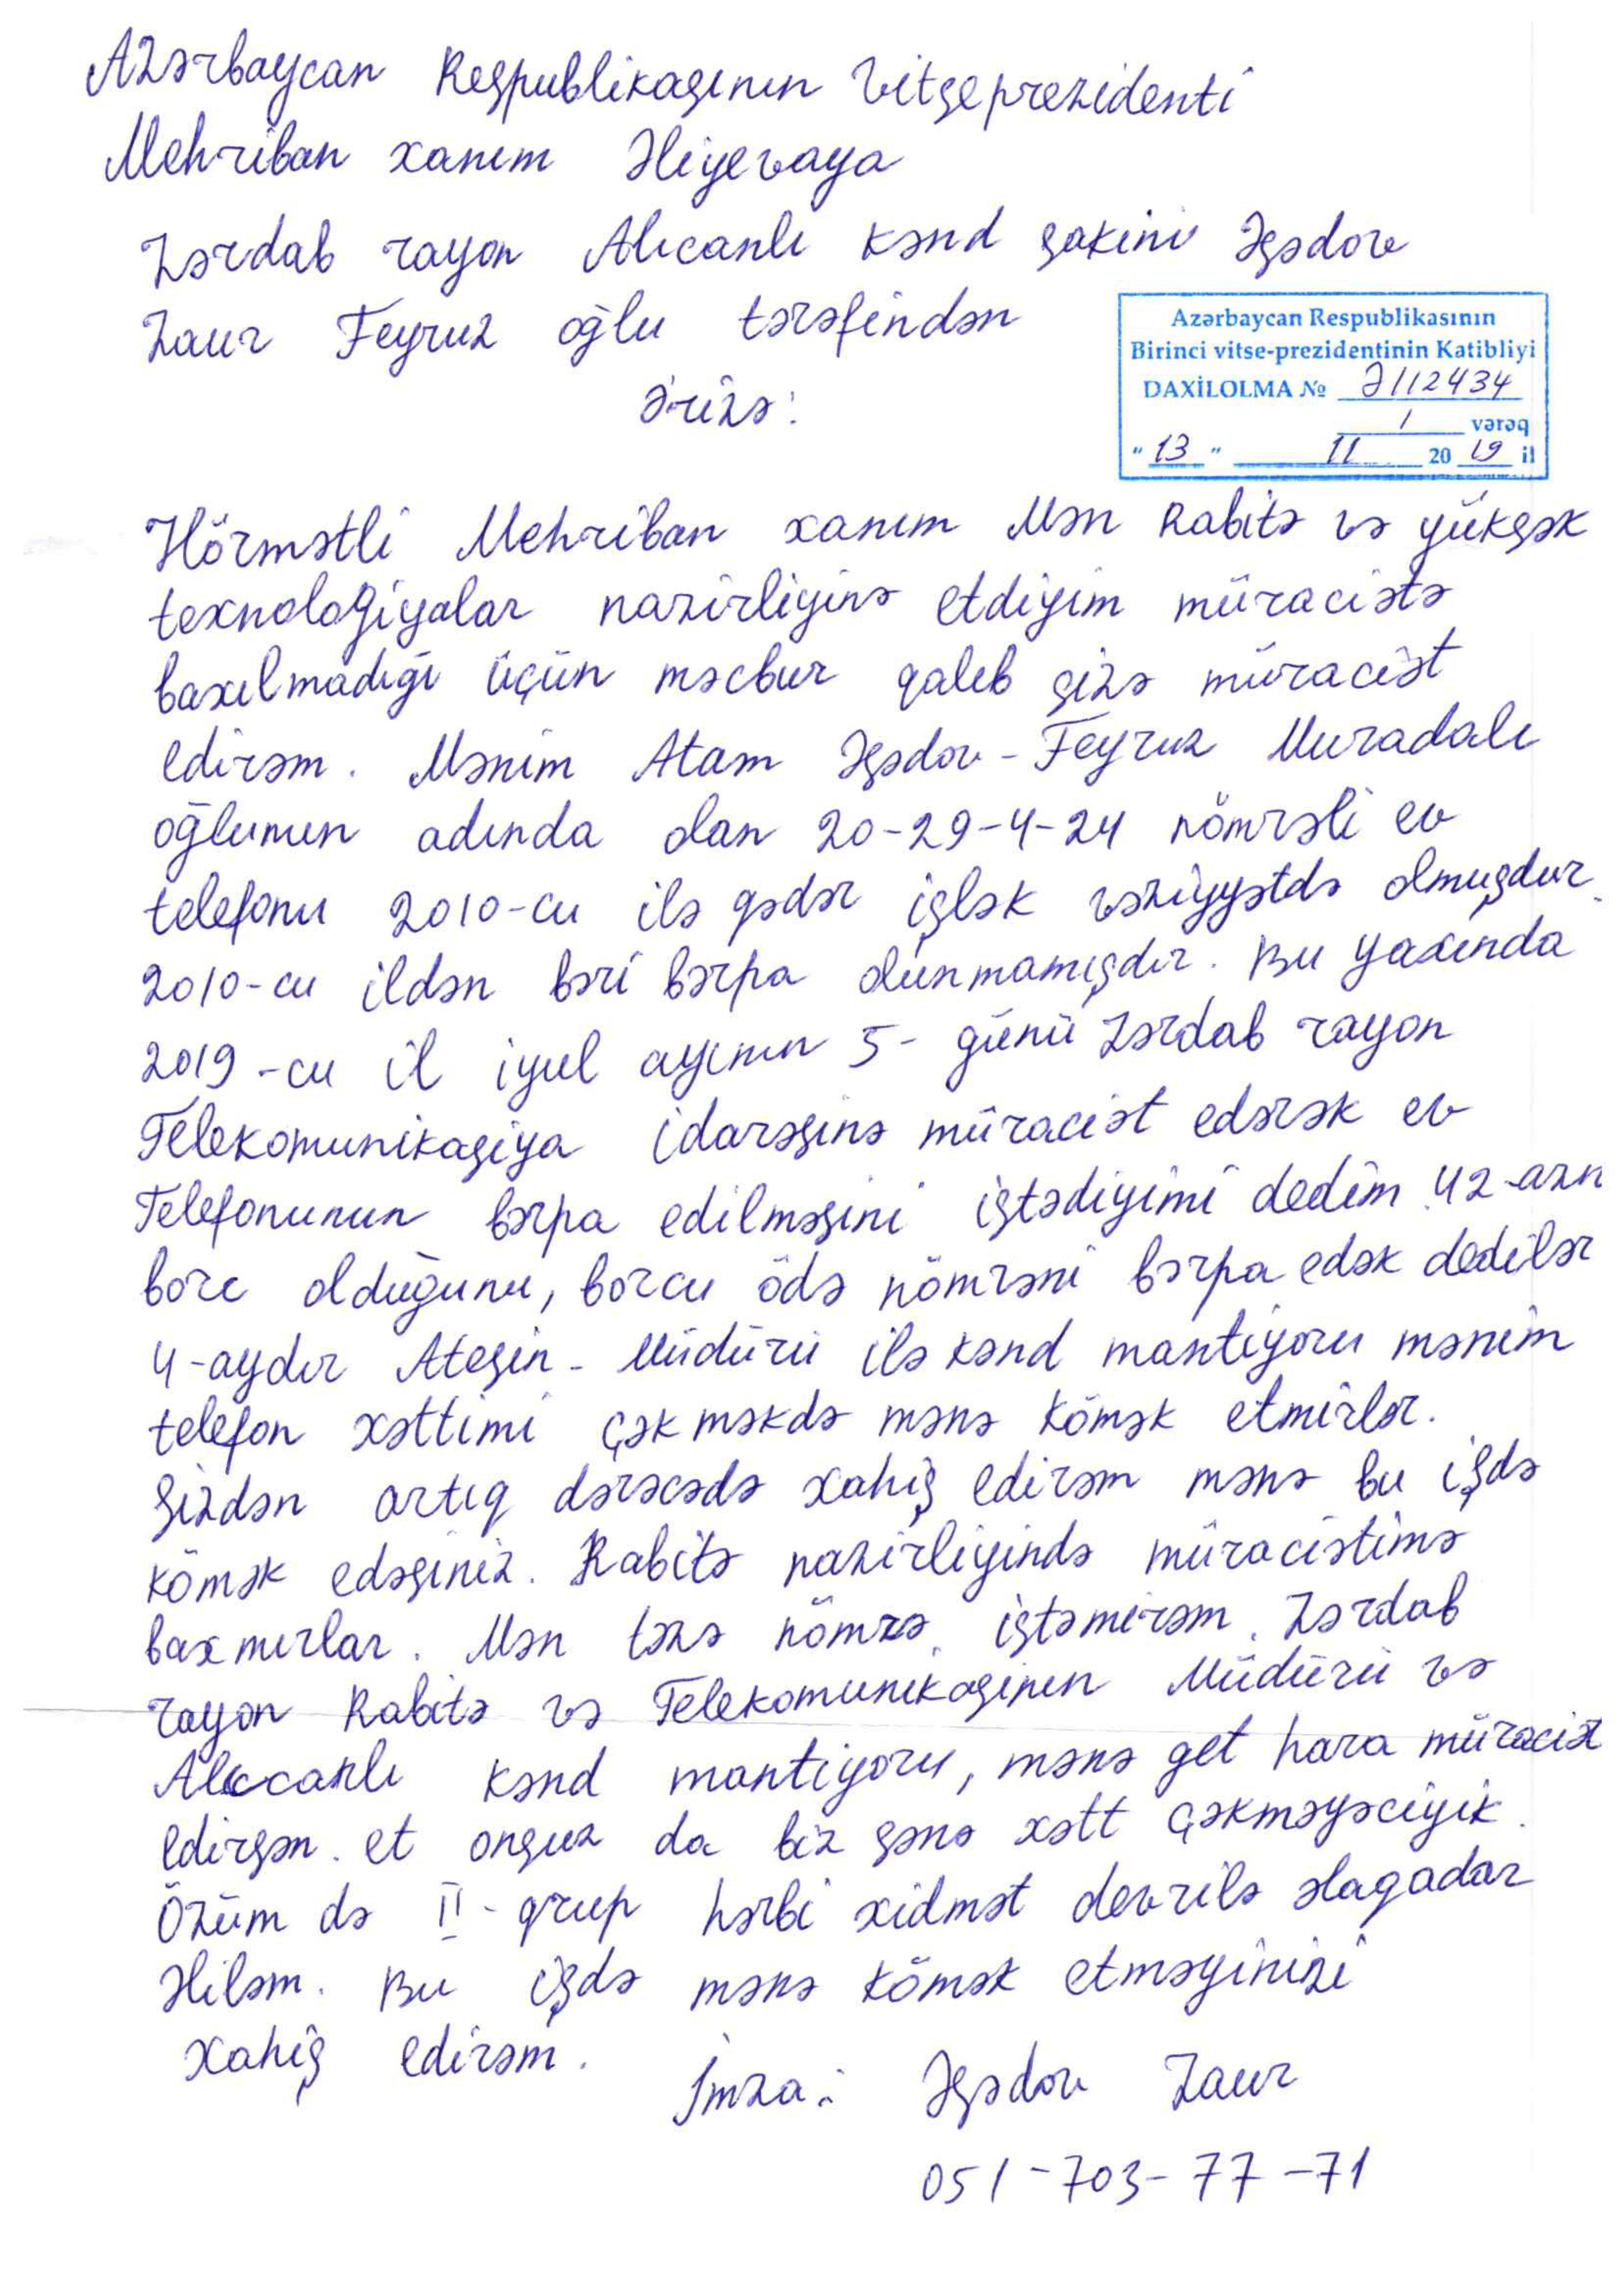 Azərbaycan Respublikasının Vitseprezidenti
Mehriban xanım Əliyevaya
Zərdab rayon Alıcanlı kənd sakini Əsədov
Zaur Feyruz oğlu tərəfindən
Ərizə:
Azərbaycan Respublikasının
Birinci vitse-prezidentinin Katibliyi
DAXİLOLMA № Ə112434
1 vərəq
"13" 11 2019 il
Hörmətli Mehriban xanım Mən Rabitə və yüksək
texnologiyalar nazirliyinə etdiyim müraciətə
baxılmadığı üçün məcbur qalıb sizə müraciət
edirəm. Mənim Atam Əsədov-Feyruz Muradalı
oğlunun adında olan 20-29-4-24 nömrəli ev
telefonu 2010-cu ilə qədər işlək vəziyyətdə olmuşdur.
2010-cu ildən bəri bərpa olunmamışdır. Bu yaxında
2019-cu il iyul ayının 5-günü Zərdab rayon
Telekomunikasiya idarəsinə müraciət edərək ev
Telefonunun bərpa edilməsini istədiyimi dedim. 42-azn
borc olduğunu, borcu ödə nömrəni bərpa edək dedilər
4-aydır Atesin-Müdürü ilə kənd mantiyoru mənim
telefon xəttimi çəkməkdə mənə kömək etmirlər.
Sizdən artıq dərəcədə xahiş edirəm mənə bu işdə
kömək edəsiniz. Rabitə nazirliyində müraciətimə
baxmırlar. Mən təzə nömrə istəmirəm. Zərdab
rayon Rabitə və Telekomunikasinin Müdürü və
Alıcanlı kənd mantiyoru, mənə get hara müraciət
edirsən. et onsuz da biz sənə xətt çəkməyəciyik.
Özüm də II-qrup hərbi xidmət devrilə əlaqadar
Əliləm. Bu işdə mənə kömək etməyinizi
xahiş edirəm.
İmza: Əsədov Zaur
051-703-77-71